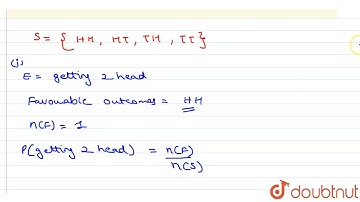 S = { HH, HT, TH, TT}
(i)
E = getting 2 head
Favourable outcomes = HH
n(E) = 1
P(getting 2 head) = n(E)
n(S)
doubtnut